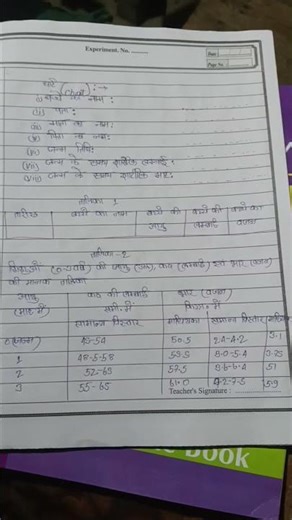 Experiment. No.
Date
Page No.
चार्ट (Chart) :→
(i) बच्चे का नाम :
(ii) लिंग :
(iii) माता का नाम :
(iv) पिता का नाम :
(v) जन्म तिथि :
(vi) जन्म के समय शारीरिक लम्बाई :
(vii) जन्म के समय शारीरिक भार :
तालिका 1
तारीख बच्चे का नाम बच्चे की आयु बच्चे की लम्बाई बच्चे का वजन
तालिका -2
शिशुओं (0-3 वर्ष) की आयु (माह), कद (लम्बाई) एवं भार (वजन)
की मानक तालिका
आयु कद की लम्बाई भार (वजन)
(माह में) सेमी. में किग्रा. में
सामान्य विस्तार माध्यिका सामान्य विस्तार माध्यिका
0 (जन्म) 45-54 50.5
1 48-5-58
2 52-65 57.5 5.1
3 55-65 61.0 4.2-7.5 5.9
Teacher's Signature :
Book